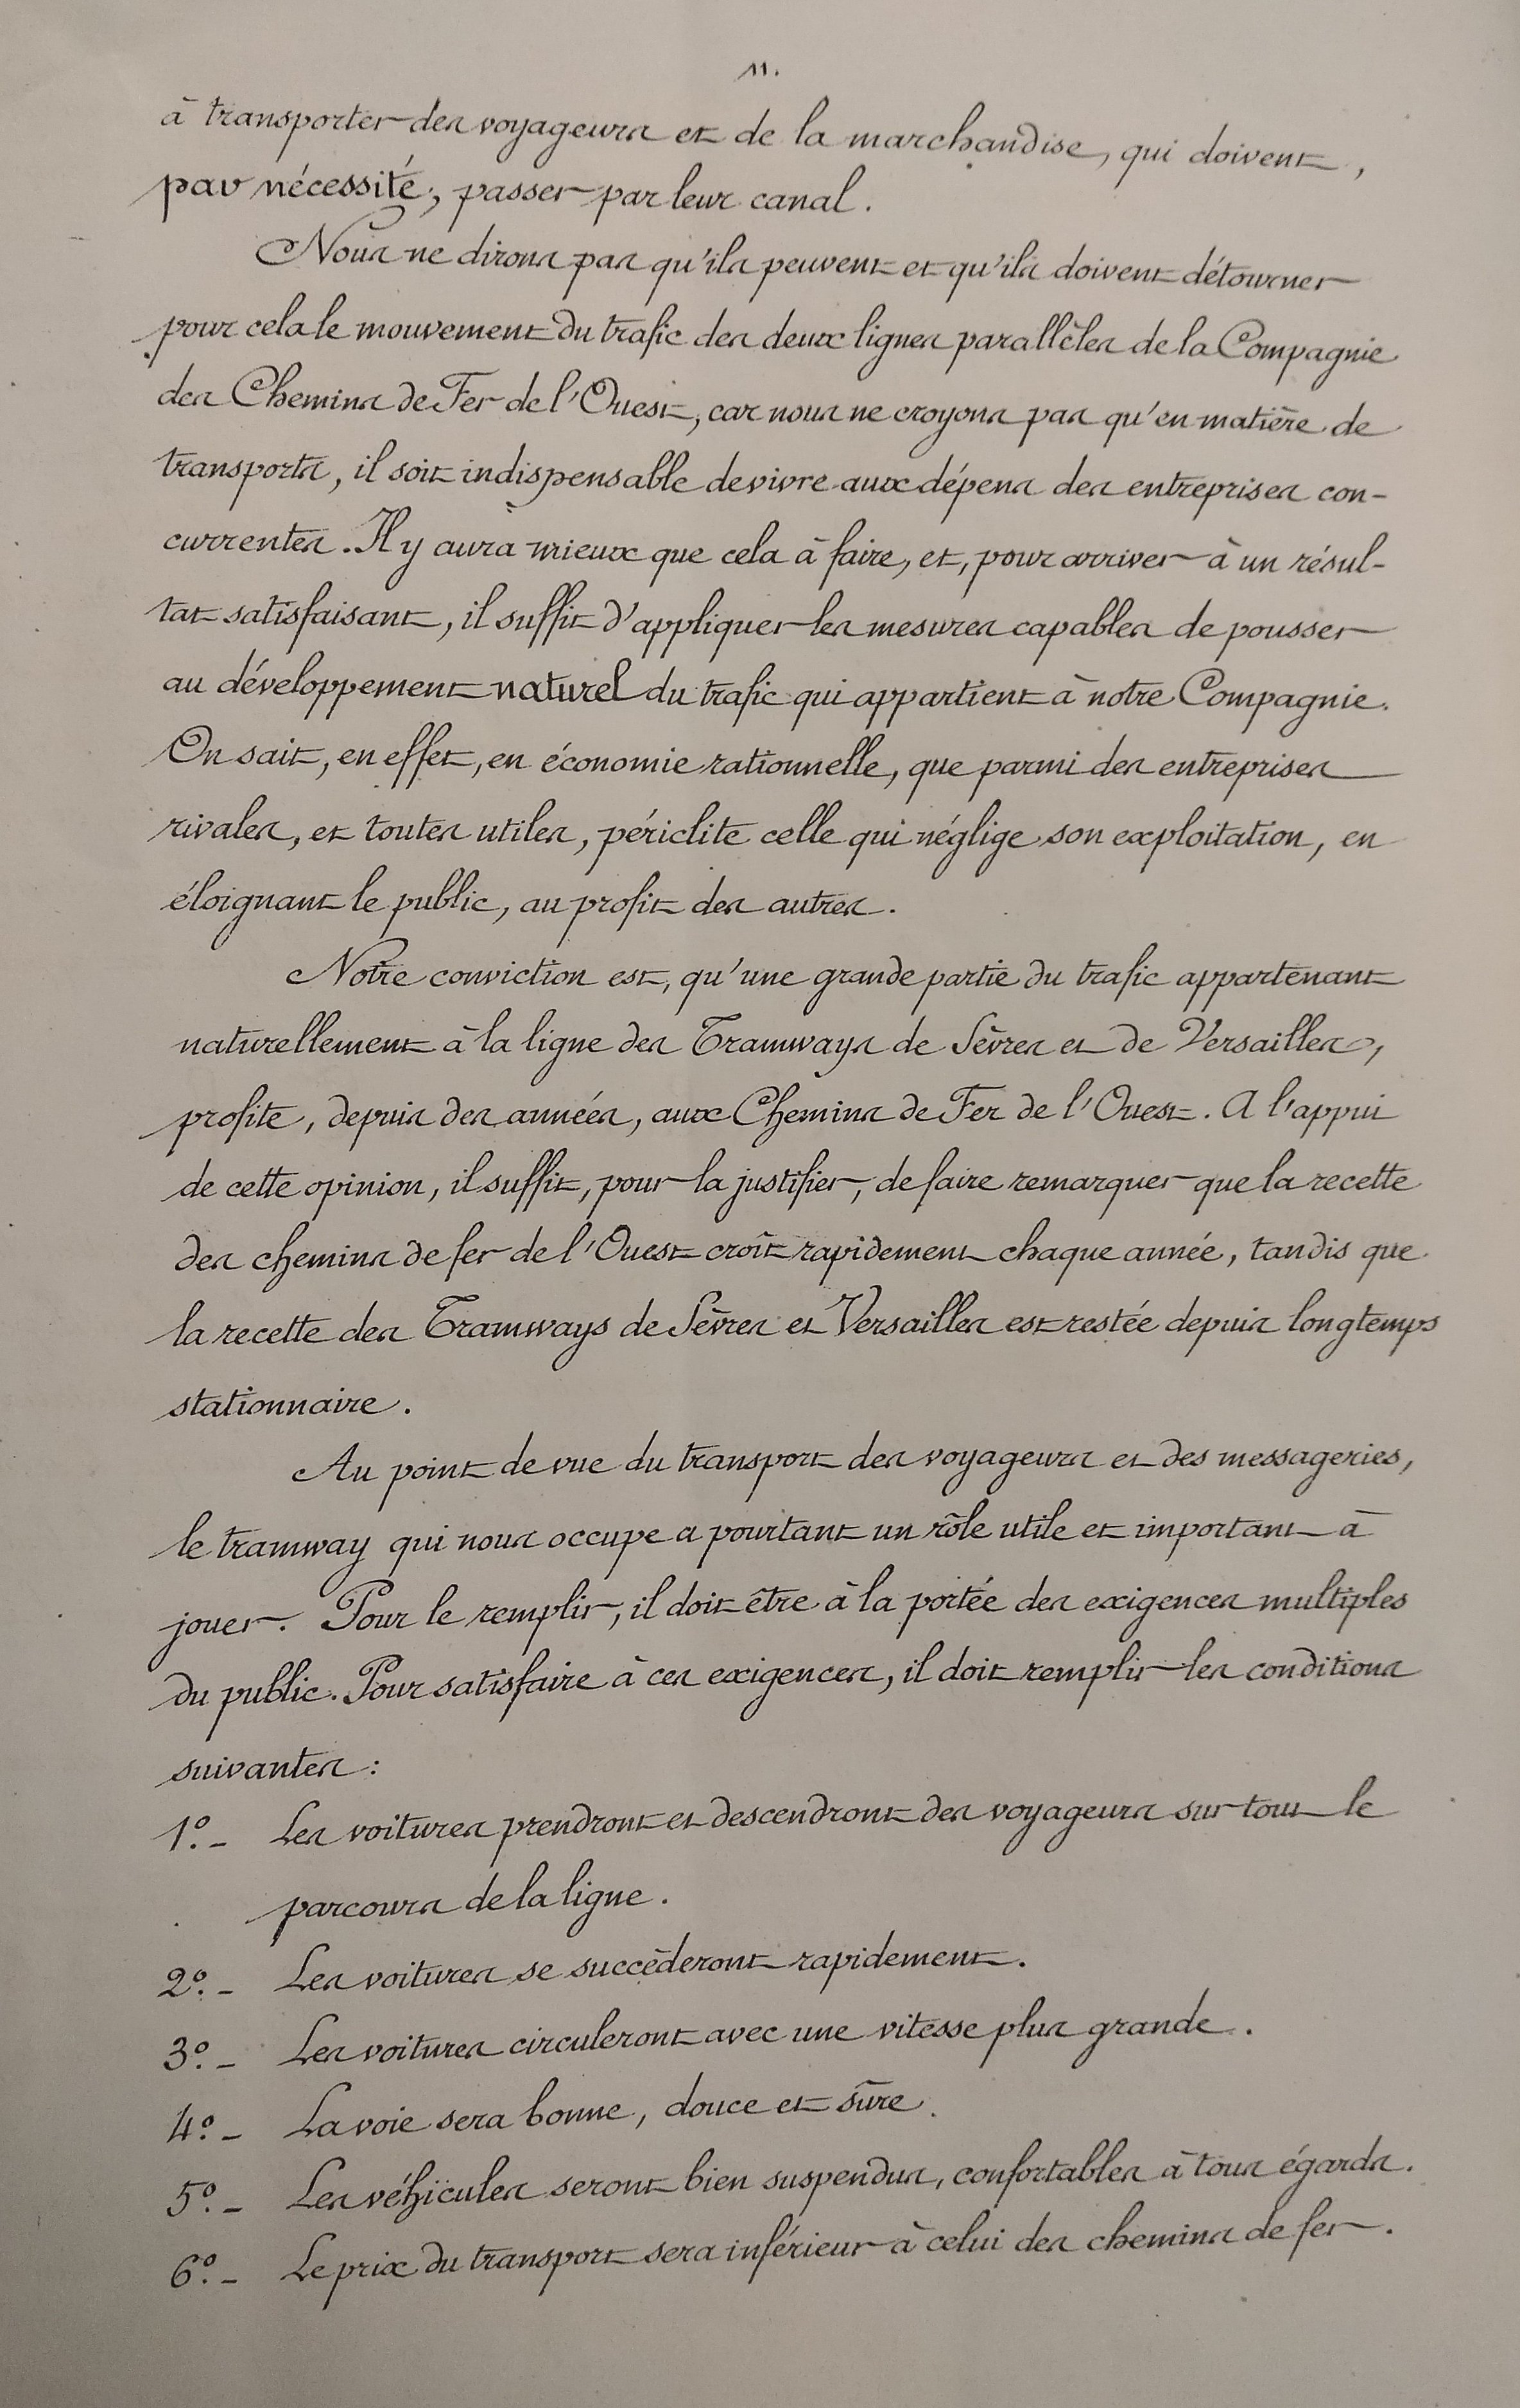 11.
à transporter des voyageurs et de la marchandise, qui doivent,
par nécessité, passer par leur canal.
Nous ne dirons pas qu'ils peuvent et qu'ils doivent détourner
pour cela le mouvement du trafic des deux lignes parallèles de la Compagnie
des Chemins de Fer de l'Ouest, car nous ne croyons pas qu'en matière de
transports, il soit indispensable de vivre aux dépens des entreprises con-
currentes. Il y aura mieux que cela à faire, et, pour arriver à un résul-
tat satisfaisant, il suffit d'appliquer les mesures capables de pousser
au développement naturel du trafic qui appartient à notre Compagnie.
On sait, en effet, en économie rationnelle, que parmi des entreprises
rivales, et toutes utiles, périclite celle qui néglige son exploitation, en
éloignant le public, au profit des autres.
Notre conviction est, qu'une grande partie du trafic appartenant
naturellement à la ligne des Tramways de Sèvres et de Versailles,
profite, depuis des années, aux Chemins de Fer de l'Ouest. A l'appui
de cette opinion, il suffit, pour la justifier, de faire remarquer que la recette
des chemins de fer de l'Ouest croît rapidement chaque année, tandis que
la recette des Tramways de Sèvres et Versailles est restée depuis longtemps
stationnaire.
Au point de vue du transport des voyageurs et des messageries,
le tramway qui nous occupe a pourtant un rôle utile et important à
jouer. Pour le remplir, il doit être à la portée des exigences multiples
du public. Pour satisfaire à ces exigences, il doit remplir les conditions
suivantes :
1º.- Les voitures prendront et descendront des voyageurs sur tout le
parcours de la ligne.
2º.- Les voitures se succèderont rapidement.
3º.- Les voitures circuleront avec une vitesse plus grande.
4º.- La voie sera bonne, douce et sûre.
5º.- Les véhicules seront bien suspendus, confortables à tous égards.
6º.- Le prix du transport sera inférieur à celui des chemins de fer.